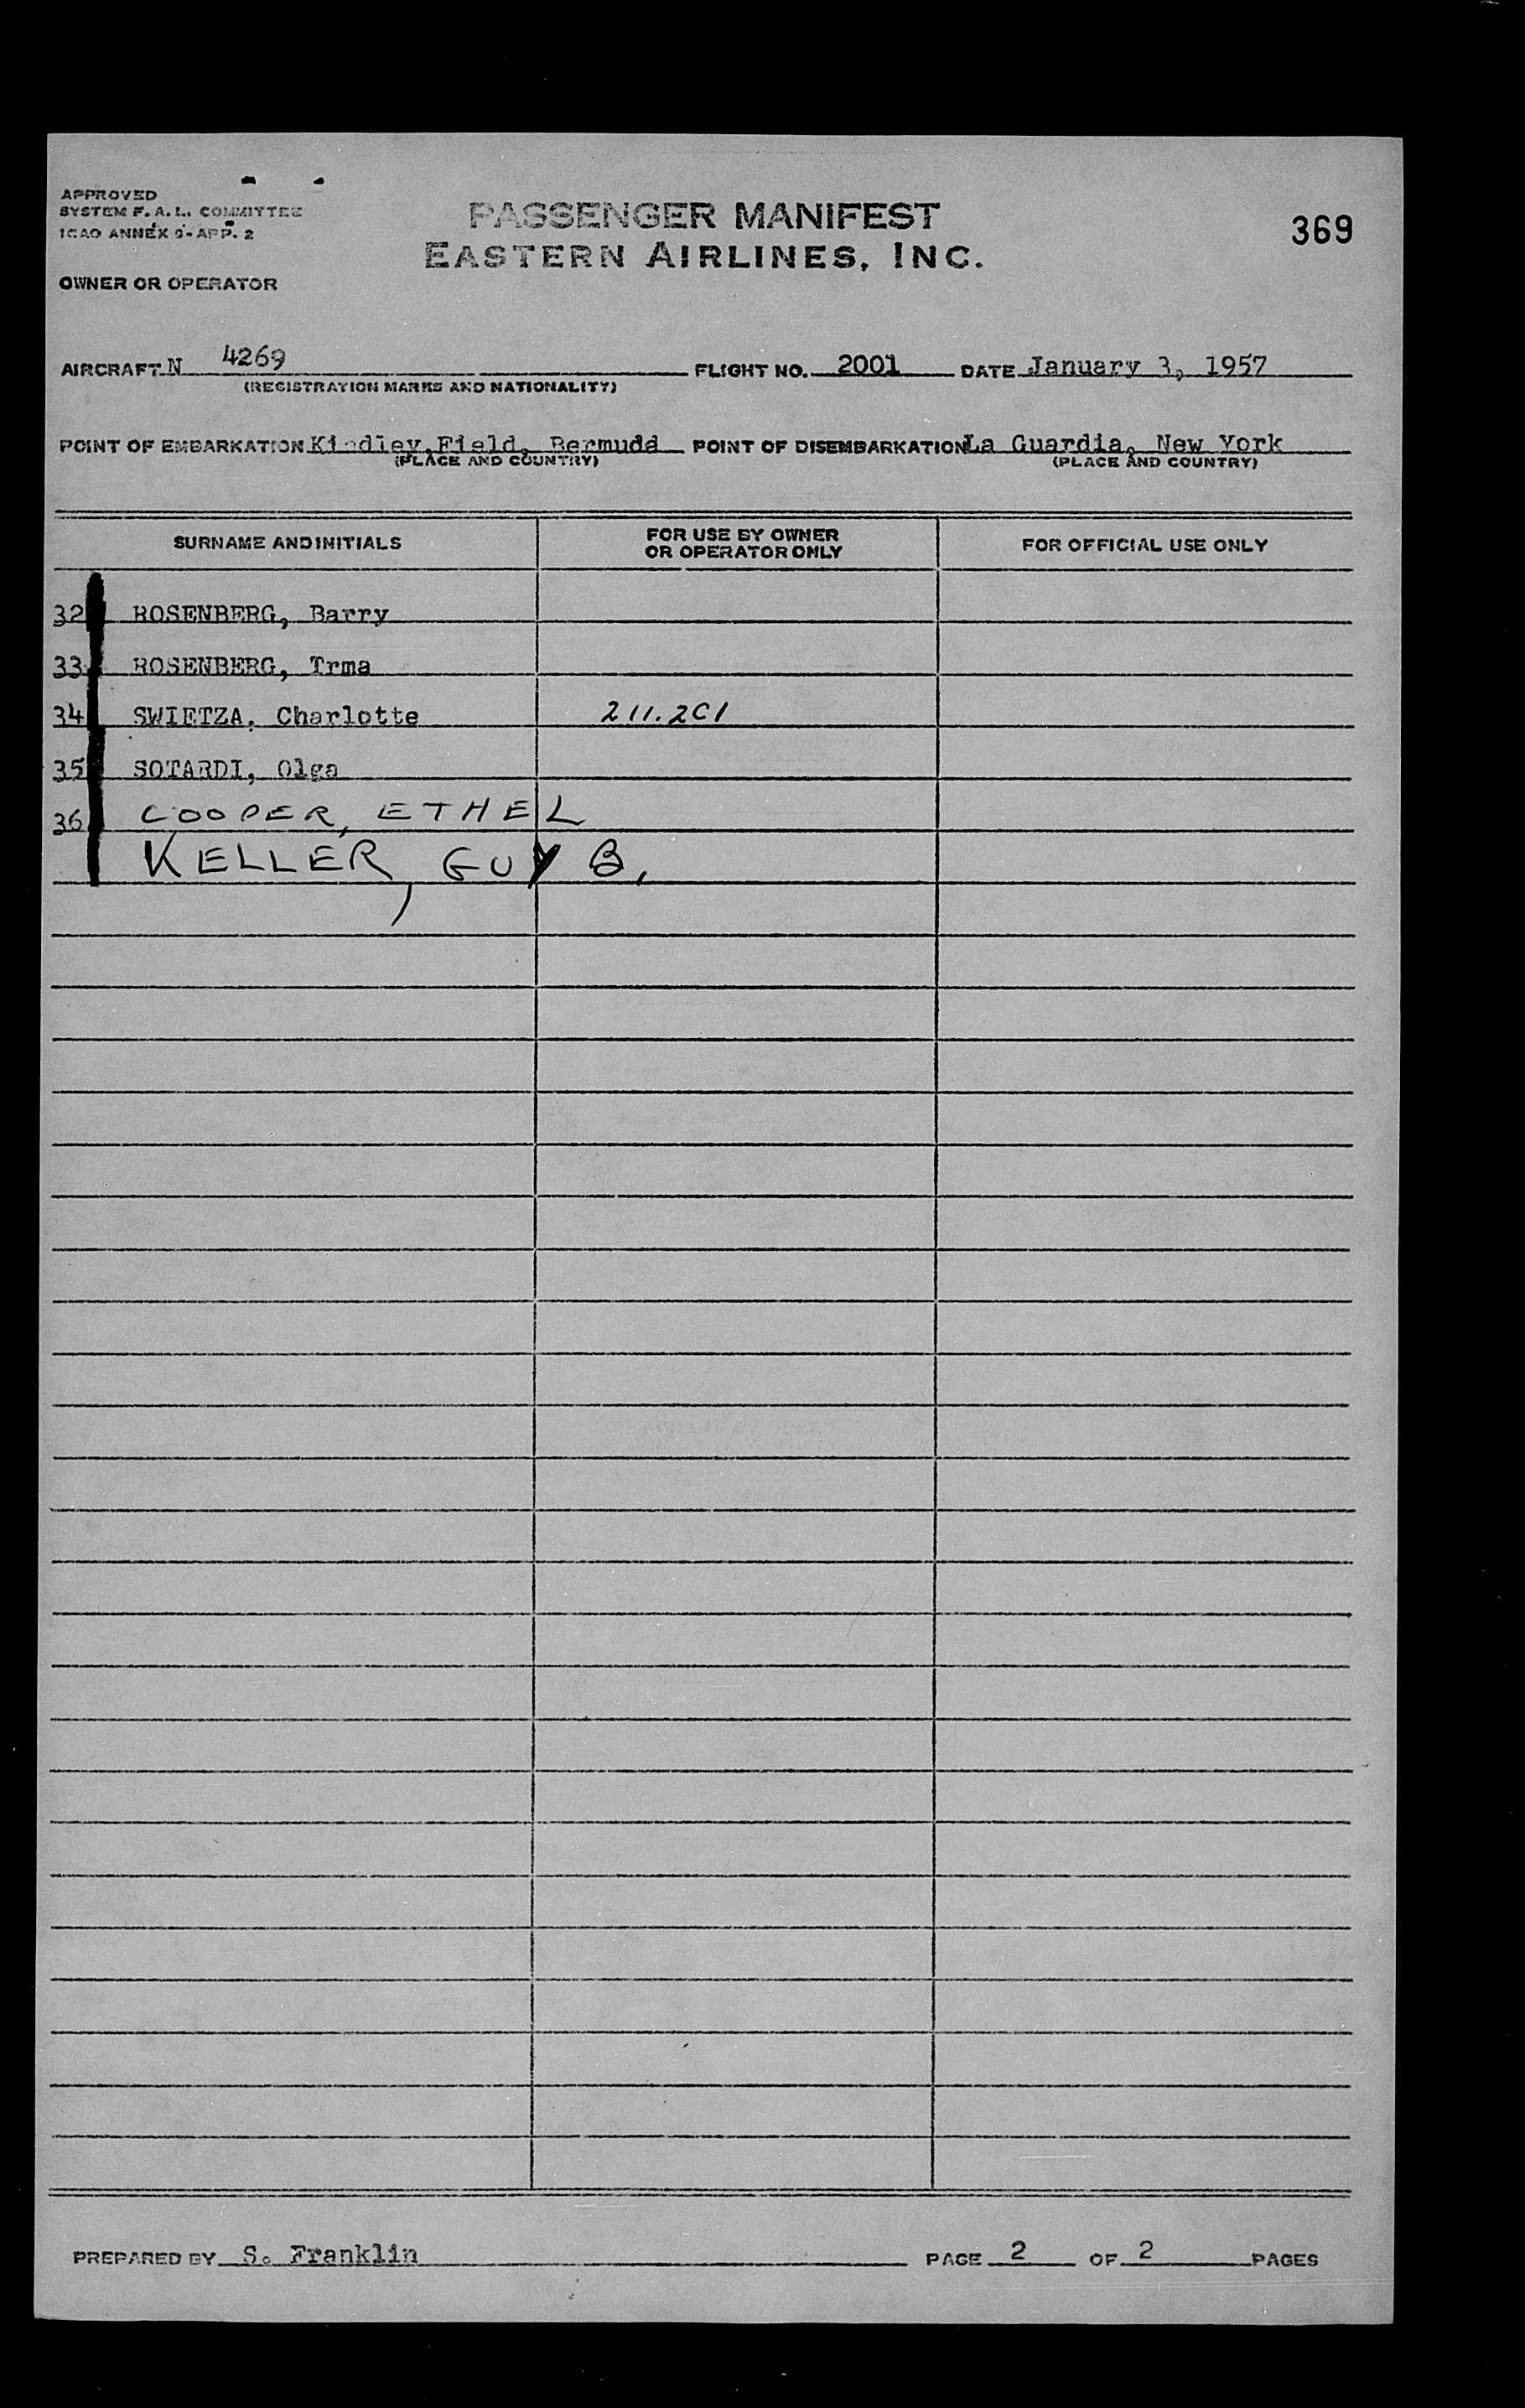 APPROVED
SYSTEM F. A. L. COMMITTEE
ICAO ANNEX 9 - APP. 2
PASSENGER MANIFEST
EASTERN AIRLINES, INC.
369
OWNER OR OPERATOR
AIRCRAFT N 4269 FLIGHT NO. 2001 DATE January 3, 1957
(REGISTRATION MARKS AND NATIONALITY)
POINT OF EMBARKATION Kindley Field, Bermuda POINT OF DISEMBARKATION La Guardia, New York
(PLACE AND COUNTRY) (PLACE AND COUNTRY)
SURNAME AND INITIALS FOR USE BY OWNER OR OPERATOR ONLY FOR OFFICIAL USE ONLY
32 ROSENBERG, Barry
33 ROSENBERG, Irma
34 SWIETZA, Charlotte 211.2C1
35 SOTARDI, Olga
36 COOPER, ETHEL
KELLER, GUY B.
PREPARED BY S. Franklin PAGE 2 OF 2 PAGES